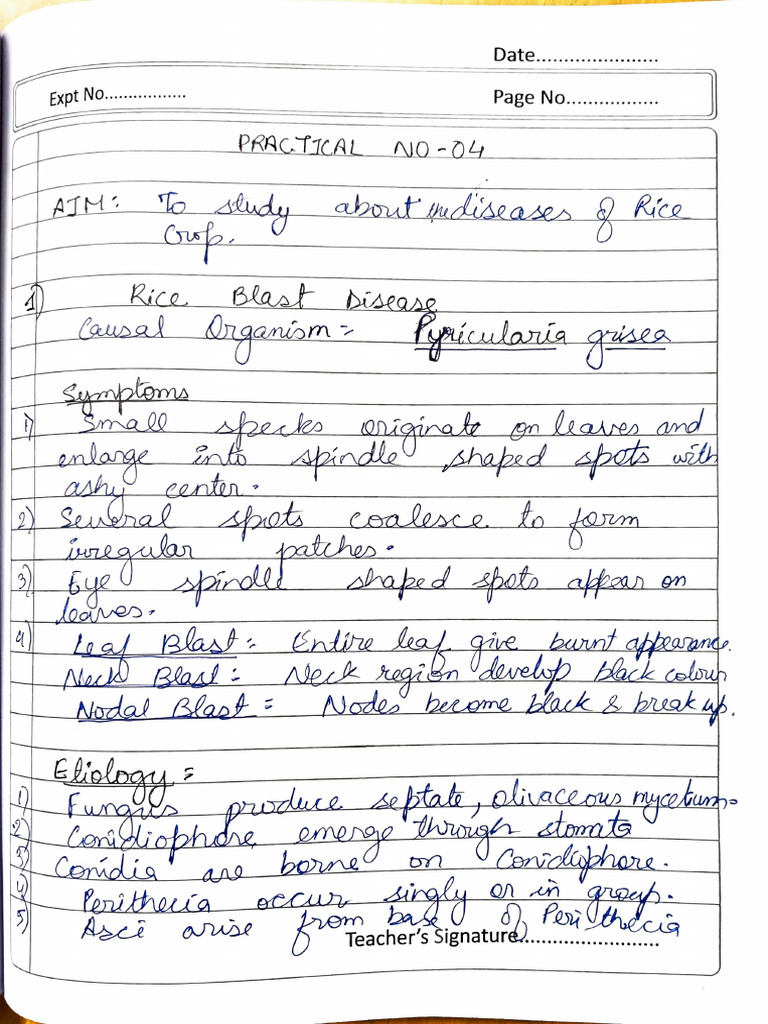 Date......................
Expt No.................
Page No.................
PRACTICAL NO-04
AIM: To study about the diseases of Rice
Crop.
1) Rice Blast Disease
Causal Organism = Pyricularia grisea
Symptoms
1) Small specks originate on leaves and
enlarge into spindle shaped spots with
ashy center.
2) Several spots coalesce to form
irregular patches.
3) Eye spindle shaped spots appear on
leaves.
4) Leaf Blast = Entire leaf give burnt appearance.
Neck Blast = Neck region develop black colour
Nodal Blast = Nodes become black & break up.
Etiology =
1) Fungus produce septate, olivaceous mycelium.
2) Conidiophore emerge through stomata
3) Conidia are borne on Conidiophore.
4) Perithecia occur singly or in group.
5) Asci arise from base of Perithecia
Teacher's Signature.........................